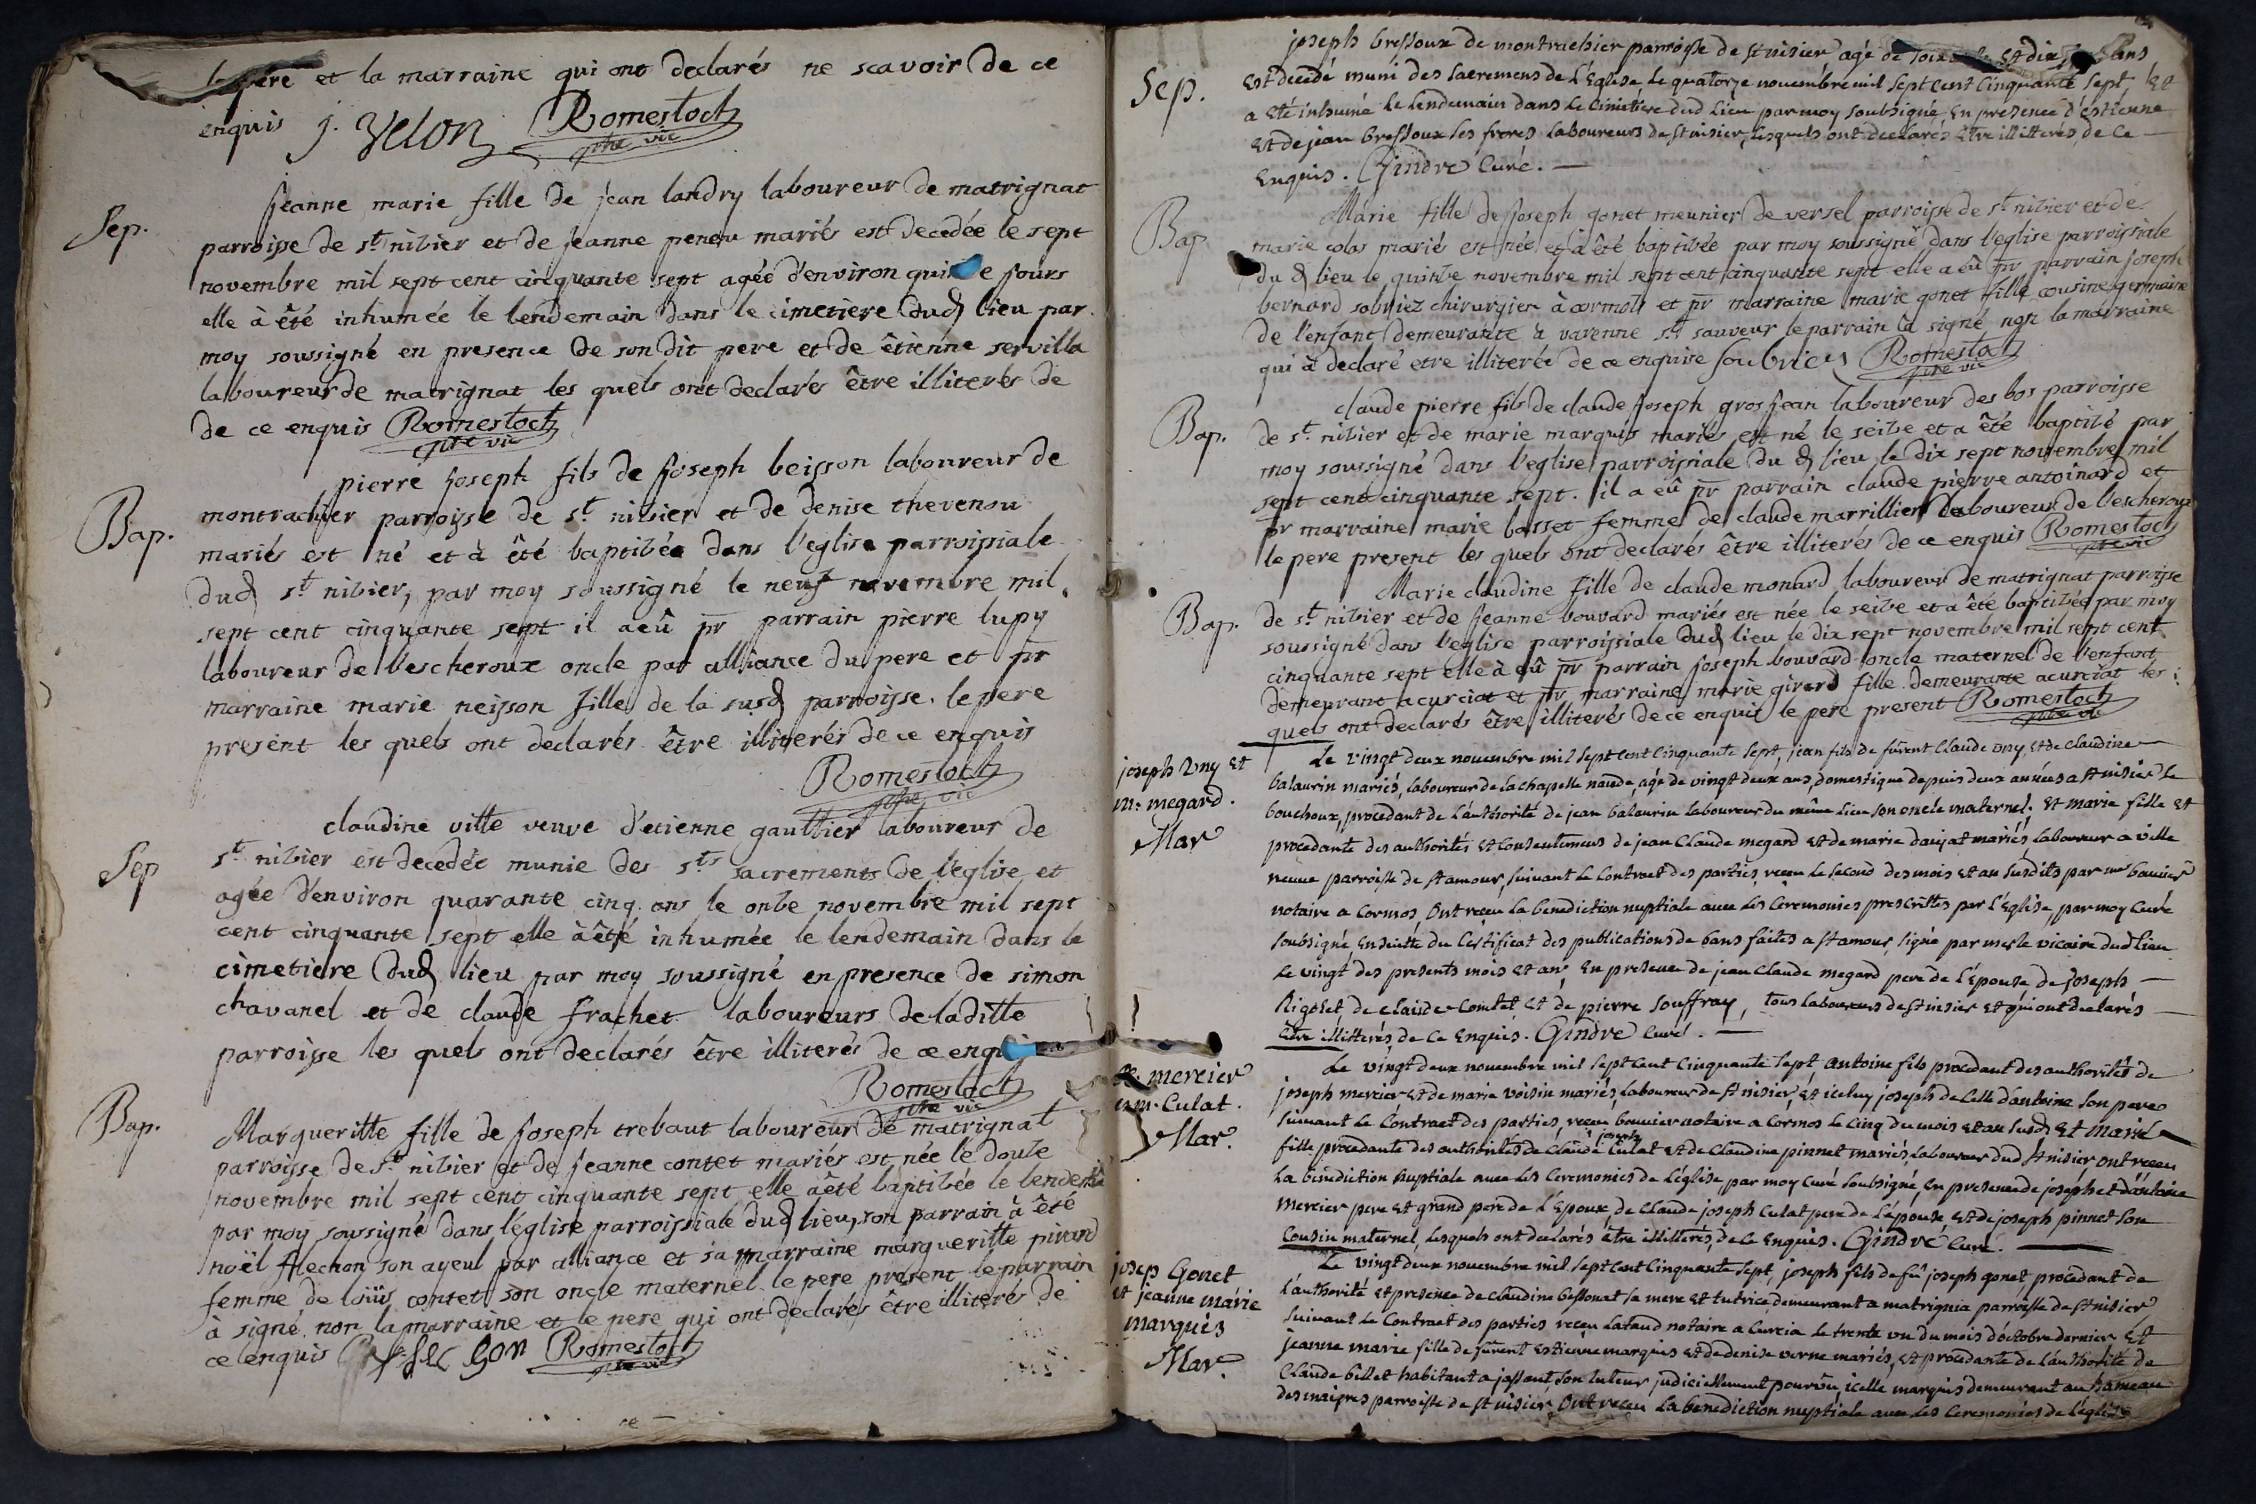 le pere et la marraine qui ont declarés ne scavoir de ce
enquis j. Velon Romestoch
ptre vic
Sep.
jeanne marie fille de jean landry laboureur de matrignat
parroisse de st nizier et de jeanne peneu mariés est decedée le sept
novembre mil sept cent cinquante sept agée d'environ quinze jours
elle à été inhumée le lendemain dans le cimetiere dud lieu par
moy soussigné en presence de son dit pere et de étienne servilla
laboureur de matrignat les quels ont declarés être illiterés de
de ce enquis Romestoch
ptre vic
Bap.
pierre joseph fils de joseph beisson laboureur de
montrachier parroisse de st nizier et de denise thevenou
mariés est né et à été baptizée dans l'eglise parroissiale
dud st nizier, par moy soussigné le neuf novembre mil
sept cent cinquante sept il a eû pr parrain pierre lupy
laboureur de l'escheroux oncle par alliance du pere et pr
marraine marie neisson fille de la susd parroisse. le pere
present les quels ont declarés être illiterés de ce enquis
Romestoch
ptre vic
Sep
claudine vitte veuve d'etienne gauthier laboureur de
st nizier est decedée munie des sts sacrements de l'eglise et
agée d'environ quarante cinq ans le onze novembre mil sept
cent cinquante sept elle à été inhumée le lendemain dans le
cimetiere dud lieu par moy soussigné en presence de simon
chavanel et de claude frachet laboureurs de laditte
parroisse les quels ont declarés être illiterés de ce enqui
Romestoch
ptre vic
Bap.
Margueritte fille de joseph trebaut laboureur de matrignat
parroisse de st nizier et de jeanne contet mariés est née le douze
novembre mil sept cent cinquante sept elle a été baptizée le lendemain
par moy soussigné dans l'église parroissiale dud lieu, son parrain à été
noël flechon son ayeul par alliance et sa marraine margueritte
femme de loüis contet son oncle maternel le pere present le parrain
à signé non la marraine et le pere qui ont declarés être illiterés de
ce enquis Romestoch
ptre vic
Sep.
joseph bressoux de montrachier parroisse de st nisier agé de ans
Est decedé muni des sacremens de l'Eglise le quatorze novembre mil sept cent cinquante sept, Et
a eté inhumé le lendemain dans le cimetiere dud lieu par moy soubsigné En presence d'estienne
Et de jean bressoux ses freres laboureurs de st nisier, lesquels ont declarés Etre illitterés, de ce
Enquis. Gindre Curé.
Bap
Marie fille de joseph gonet meunier de versel parroisse de st nizier et de
marie colas mariés est née et à été baptizée par moy soussigné dans l'eglise parroissiale
du d lieu le quinze novembre mil sept cent cinquante sept elle a eû pr parrain joseph
bernard chirurgien à cormoz et pr marraine marie gonet fille cousine germaine
de l'enfant demeurante à varenne st sauveur le parrain a signé non la marraine
qui à declaré etre illiterée de ce enquise Romestoch
ptre vic
Bap.
claude pierre fils de claude joseph gros jean laboureur des bos parroisse
de st. nizier et de marie marquis mariés est né le seize et a été baptizé par
moy soussigné dans l'eglise parroissiale du d lieu le dix sept novembre mil
sept cent cinquante sept. il a eû pr parrain claude pierre antoinard et
pr marraine marie basset femme de claude marrillier laboureur de l'escheroux
le pere present les quels ont declarés être illiterés de ce enquis Romestoch
ptre vic
Bap.
Marie claudine fille de claude monard laboureur de matrignat parroisse
de st. nizier et de jeanne bouvard mariés est née le seize et a été baptizée par moy
soussigné dans l'eglise parroissiale dud lieu le dix sept novembre mil sept cent
cinquante sept elle à eû pr parrain joseph bouvard oncle maternel de l'enfant
demeurant a curciat et pr marraine marie girard fille demeurante a curciat les
quels ont declarés être illiterés de ce enquis le pere present Romestoch
ptre vic
joseph Vny Et
m. megard.
Mar
Le vingt deux novembre mil sept cent cinquante sept, jean fils de furent Claude vny, Et de Claudine
balaurin mariés, laboureur de la chapelle naude, agé de vingt deux ans, domestique depuis deux années a st nisier le
bouchoux, procedant de l'authorité de jean balaurin laboureur du même lieu son oncle maternel. Et marie fille Et
procedante des authorités Et consentemens de jean Claude megard Et de marie daujat mariés, laboureur a ville
neuve parroisse de st amour, suivant le contract des parties, receu le second des mois Et an susdits par me bouvier
notaire a Cormos, Ont receu la benediction nuptiale avec les Ceremonies prescrittes par l'Eglise, par moy Curé
soubsigné Ensuitte du Certificat des publications de bans faites a st amour, signé par mesle vicaire dud lieu
le vingt des presents mois Et an, En presence de jean Claude megard pere de l'Epouse, de joseph
Rigolet, de Claude Comtet, Et de pierre souffray, tous laboureurs de st nisier Et qui ont declarés
être illitterés, de ce Enquis. Gindre Curé.
mercier
et m. Culat.
Mar.
Le vingt deux novembre mil sept cent cinquante sept antoine fils procedant des authorités de
joseph mercier Et de marie voisin mariés, laboureur de st nisier, Et iceluy joseph de celle d'antoine son pere
suivant le Contract des parties, receu bouvier notaire a Cormos le cinq du mois Et an susd, Et marie
fille procedante des authorités de claude joseph Culat Et de Claudine pinnet mariés, laboureur dud st nisier, ont receu
la bénediction nuptiale avec les Ceremonies de l'église, par moy Curé soubsigné, En presence de joseph et d'antoine
mercier pere Et grand pere de l'Époux, de Claude joseph Culat pere de l'épouse Et de joseph pinnet son
Cousin maternel, lesquels ont declarés être illitterés, de ce Enquis. Gindre Curé.
josep Gonet
et jeanne marie
marquis
Mar.
Le vingt deux novembre mil sept cent cinquante sept, joseph fils de fû joseph gonet procedant de
l'authorité Et presence de claudine bessonat sa mere Et tutrice, demeurant a matrignia parroisse de st nisier
suivant le Contract des parties receu lataud notaire a Curcia le trente vn du mois d'octobre dernier Et
jeanne marie fille de furent Estienne marquis Et de denise verne mariés, Et procedante de l'authorité de
Claude billet habitant a son tuteur judiciellement pourvu, icelle marquis demeurant au hameau
des parroisse de st nisier, Ont receu la benediction nuptiale avec les Ceremonies de l'église